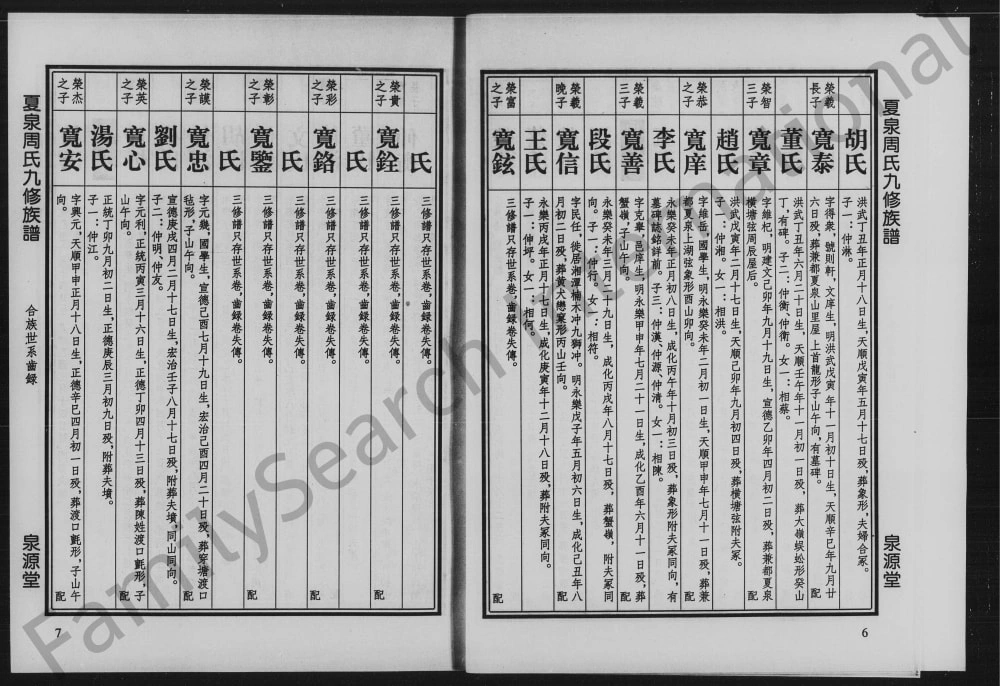 夏泉周氏九修族譜
泉源堂
6
胡氏
洪武丁丑年正月十八日生，天順戊寅年五月十七日歿，葬象形，夫婦合冢。
子一：仲淋。
榮羲長子
寬泰
字得衆，號則軒，文庠生，明洪武戊寅年十一月初十日生，天順辛巳年九月廿
六日歿，葬兼都夏泉山里屋上首龍形子山午向，有墓碑。
配
董氏
洪武丁丑年六月二十日生，天順壬午年十一月初一日歿，葬大嶺蜈蚣形癸山
丁，有碑。子二：仲衡、仲衛。女一：相蔡。
榮智三子
寬章
字維杞，明建文己卯年九月十九日生，宣德乙卯年四月初二日歿，葬兼都夏泉
橫塘弦周辰屋后。
配
趙氏
洪武戊寅年二月十七日生，天順己卯年九月初四日歿，葬橫塘弦附夫冢。
子一：仲湘。女一：相洪。
榮恭之子
寬庠
字維岳，國學生，明永樂癸未年二月初一日生，天順甲申年七月十一日歿，葬兼
都夏泉上湖弦象形酉山卯向。
配
李氏
永樂癸未年正月初八日生，成化丙午年十月初三日歿，葬象形附夫冢同向，有
墓碑誌銘詳前。子三：仲漢、仲源、仲清。女一：相陳。
榮羲三子
寬善
字克舉，邑庠生，明永樂甲申年七月二十一日生，成化乙酉年六月十一日歿，葬
蟹嶺，子山午向。
配
段氏
永樂癸未年三月二十九日生，成化丙戌年八月十七日歿，葬蟹嶺，附夫冢同
向。子一：仲行。女一：相符。
榮羲晚子
寬信
字民任，徙居湘潭楠木冲九獅冲。明永樂戊子年五月初六日生，成化己丑年八
月初二日歿，葬黃犬戀窠形丙山壬向。
配
王氏
永樂丙戌年正月十七日生，成化庚寅年十二月十八日歿，葬附夫冢同向。
子一：仲坪。女一：相何。
榮富之子
寬鉉
三修譜只存世系卷，齒録卷失傳。
配
氏
三修譜只存世系卷，齒録卷失傳。
榮貴之子
寬銓
三修譜只存世系卷，齒録卷失傳。
配
氏
三修譜只存世系卷，齒録卷失傳。
榮彩之子
寬鉻
三修譜只存世系卷，齒録卷失傳。
配
氏
三修譜只存世系卷，齒録卷失傳。
榮彰之子
寬鑒
三修譜只存世系卷，齒録卷失傳。
配
氏
三修譜只存世系卷，齒録卷失傳。
榮謨之子
寬忠
字元幾，國學生，宣德己酉七月十九日生，宏治己酉四月二十日歿，葬穿塘渡口
毡形，子山午向。
配
劉氏
宣德庚戌四月二月十七日生，宏治壬子八月十七日歿，附葬夫墳，同山同向。
子二：仲明、仲友。
榮英之子
寬心
字元利，正統丙寅三月十六日生，正德丁卯四月十三日歿，葬陳姓渡口氈形，子
山午向。
配
湯氏
正統丁卯九月初二日生，正德庚辰三月初九日歿，附葬夫墳。
子一：仲江。
榮杰之子
寬安
字興元，天順甲申正月十八日生，正德辛巳四月初一日歿，葬渡口氈形，子山午
向。
配
夏泉周氏九修族譜
合族世系齒録
泉源堂
7
FamilySearch International